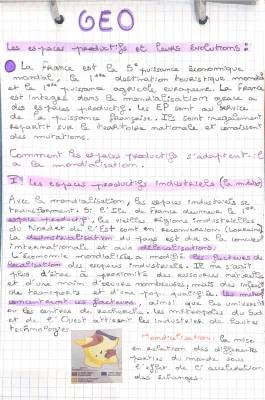 GEO
Les espaces productifs et leurs évolutions :
La France est la 5e puissance économique
mondial, la 1ère destination touristique mondial
et la 1ère puissance agricole européenne. La France
est intégrée dans la mondialisation grâce a
des espaces productifs. Les EP sont au service
de la puissance française. Ils sont inégalement
répartit sur le territoire nationale et connaissent
des mutations.
Comment les espaces productifs s'adaptent-il
a la mondialisation.
I) Les espaces productifs industriels
Avec la mondialisation, les espaces industriels se
transforment. Si l'Ile de France demeure le 1er
espace productif, les vieilles régions industrielles
du Nord et de l'Est sont en reconversion (Lorraine)
La désindustrialisation du pays est due a la
internationale et aux délocalisations.
L'économie mondialisée a modifié les facteurs de
localisation des espaces industriels. Il ne s'agit
plus d'être a proximité des ressources naturelles
et d'une main d'oeuvre nombreuse, mais des
de transports et d'une pop. qualifiée. Les
concentrent ces facteurs, ainsi que les
et les centres de recherche. Les métropoles du Sud
et de l'Ouest attirent les industries de hautes
technologies.
Mondialisation : la mise
en relation des différentes
parties du monde sous
l'effet de l'accélération
des échanges.